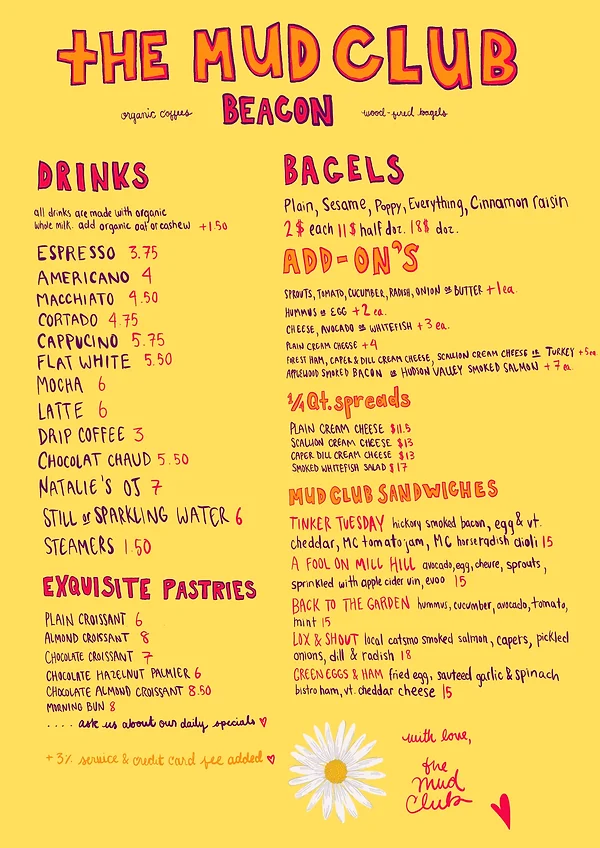 THE MUD CLUB
organic coffees BEACON wood-fired bagels
DRINKS
all drinks are made with organic
whole milk. add organic oat or cashew +1.50
ESPRESSO 3.75
AMERICANO 4
MACCHIATO 4.50
CORTADO 4.75
CAPPUCINO 5.75
FLAT WHITE 5.50
MOCHA 6
LATTE 6
DRIP COFFEE 3
CHOCOLAT CHAUD 5.50
NATALIE'S OJ 7
STILL or SPARKLING WATER 6
STEAMERS 1.50
EXQUISITE PASTRIES
PLAIN CROISSANT 6
ALMOND CROISSANT 8
CHOCOLATE CROISSANT 7
CHOCOLATE HAZELNUT PALMIER 6
CHOCOLATE ALMOND CROISSANT 8.50
MORNING BUN 8
.... ask us about our daily specials ♥
+ 3% service & credit card fee added ♥
BAGELS
Plain, Sesame, Poppy, Everything, Cinnamon raisin
2$ each 11$ half doz. 18$ doz.
ADD-ON'S
SPROUTS, TOMATO, CUCUMBER, RADISH, ONION or BUTTER +1 ea.
HUMMUS or EGG +2 ea.
CHEESE, AVOCADO or WHITEFISH +3 ea.
PLAIN CREAM CHEESE +4
FOREST HAM, CAPER & DILL CREAM CHEESE, SCALLION CREAM CHEESE or TURKEY +5 ea.
APPLEWOOD SMOKED BACON or HUDSON VALLEY SMOKED SALMON +7 ea.
1/4 Qt. spreads
PLAIN CREAM CHEESE $11.5
SCALLION CREAM CHEESE $13
CAPER DILL CREAM CHEESE $13
SMOKED WHITEFISH SALAD $17
MUD CLUB SANDWICHES
TINKER TUESDAY hickory smoked bacon, egg & vt.
cheddar, MC tomato jam, MC horseradish aioli 15
A FOOL ON MILL HILL avocado, egg, chevre, sprouts,
sprinkled with apple cider vin, evoo 15
BACK TO THE GARDEN hummus, cucumber, avocado, tomato,
mint 15
LOX & SHOUT local catsmo smoked salmon, capers, pickled
onions, dill & radish 18
GREEN EGGS & HAM fried egg, sauteed garlic & spinach
bistro ham, vt. cheddar cheese 15
with love,
the
mud
Club